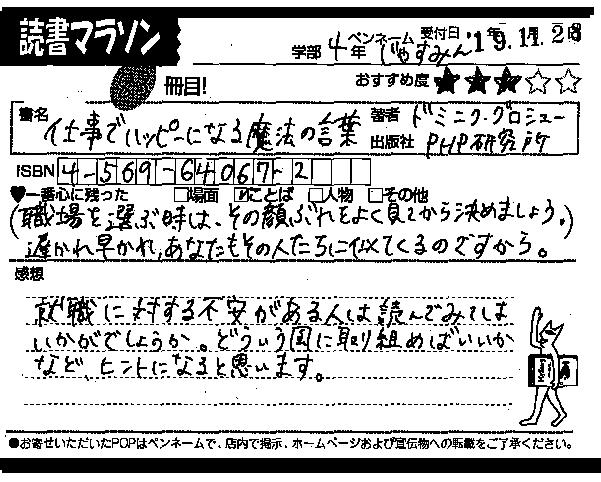 読書マラソン
学部 4年 ペンネーム じゃすみん 受付日 '19.11.28
冊目!
おすすめ度 ★★★☆☆
書名 仕事でハッピーになる魔法の言葉
著者 ドミニク・グロシュー
出版社 PHP研究所
ISBN 4-569-64067-2
♥一番心に残った □場面 ☑ことば □人物 □その他
(職場を選ぶ時は、その顔ぶれをよく見てから決めましょう。)
遅かれ早かれ、あなたもその人たちに似てくるのですから。
感想
就職に対する不安がある人は読んでみては
いかがでしょうか。どういう風に取り組めばいいか
など、ヒントになると思います。
●お寄せいただいたPOPはペンネームで、店内で掲示、ホームページおよび宣伝物への転載をご了承ください。